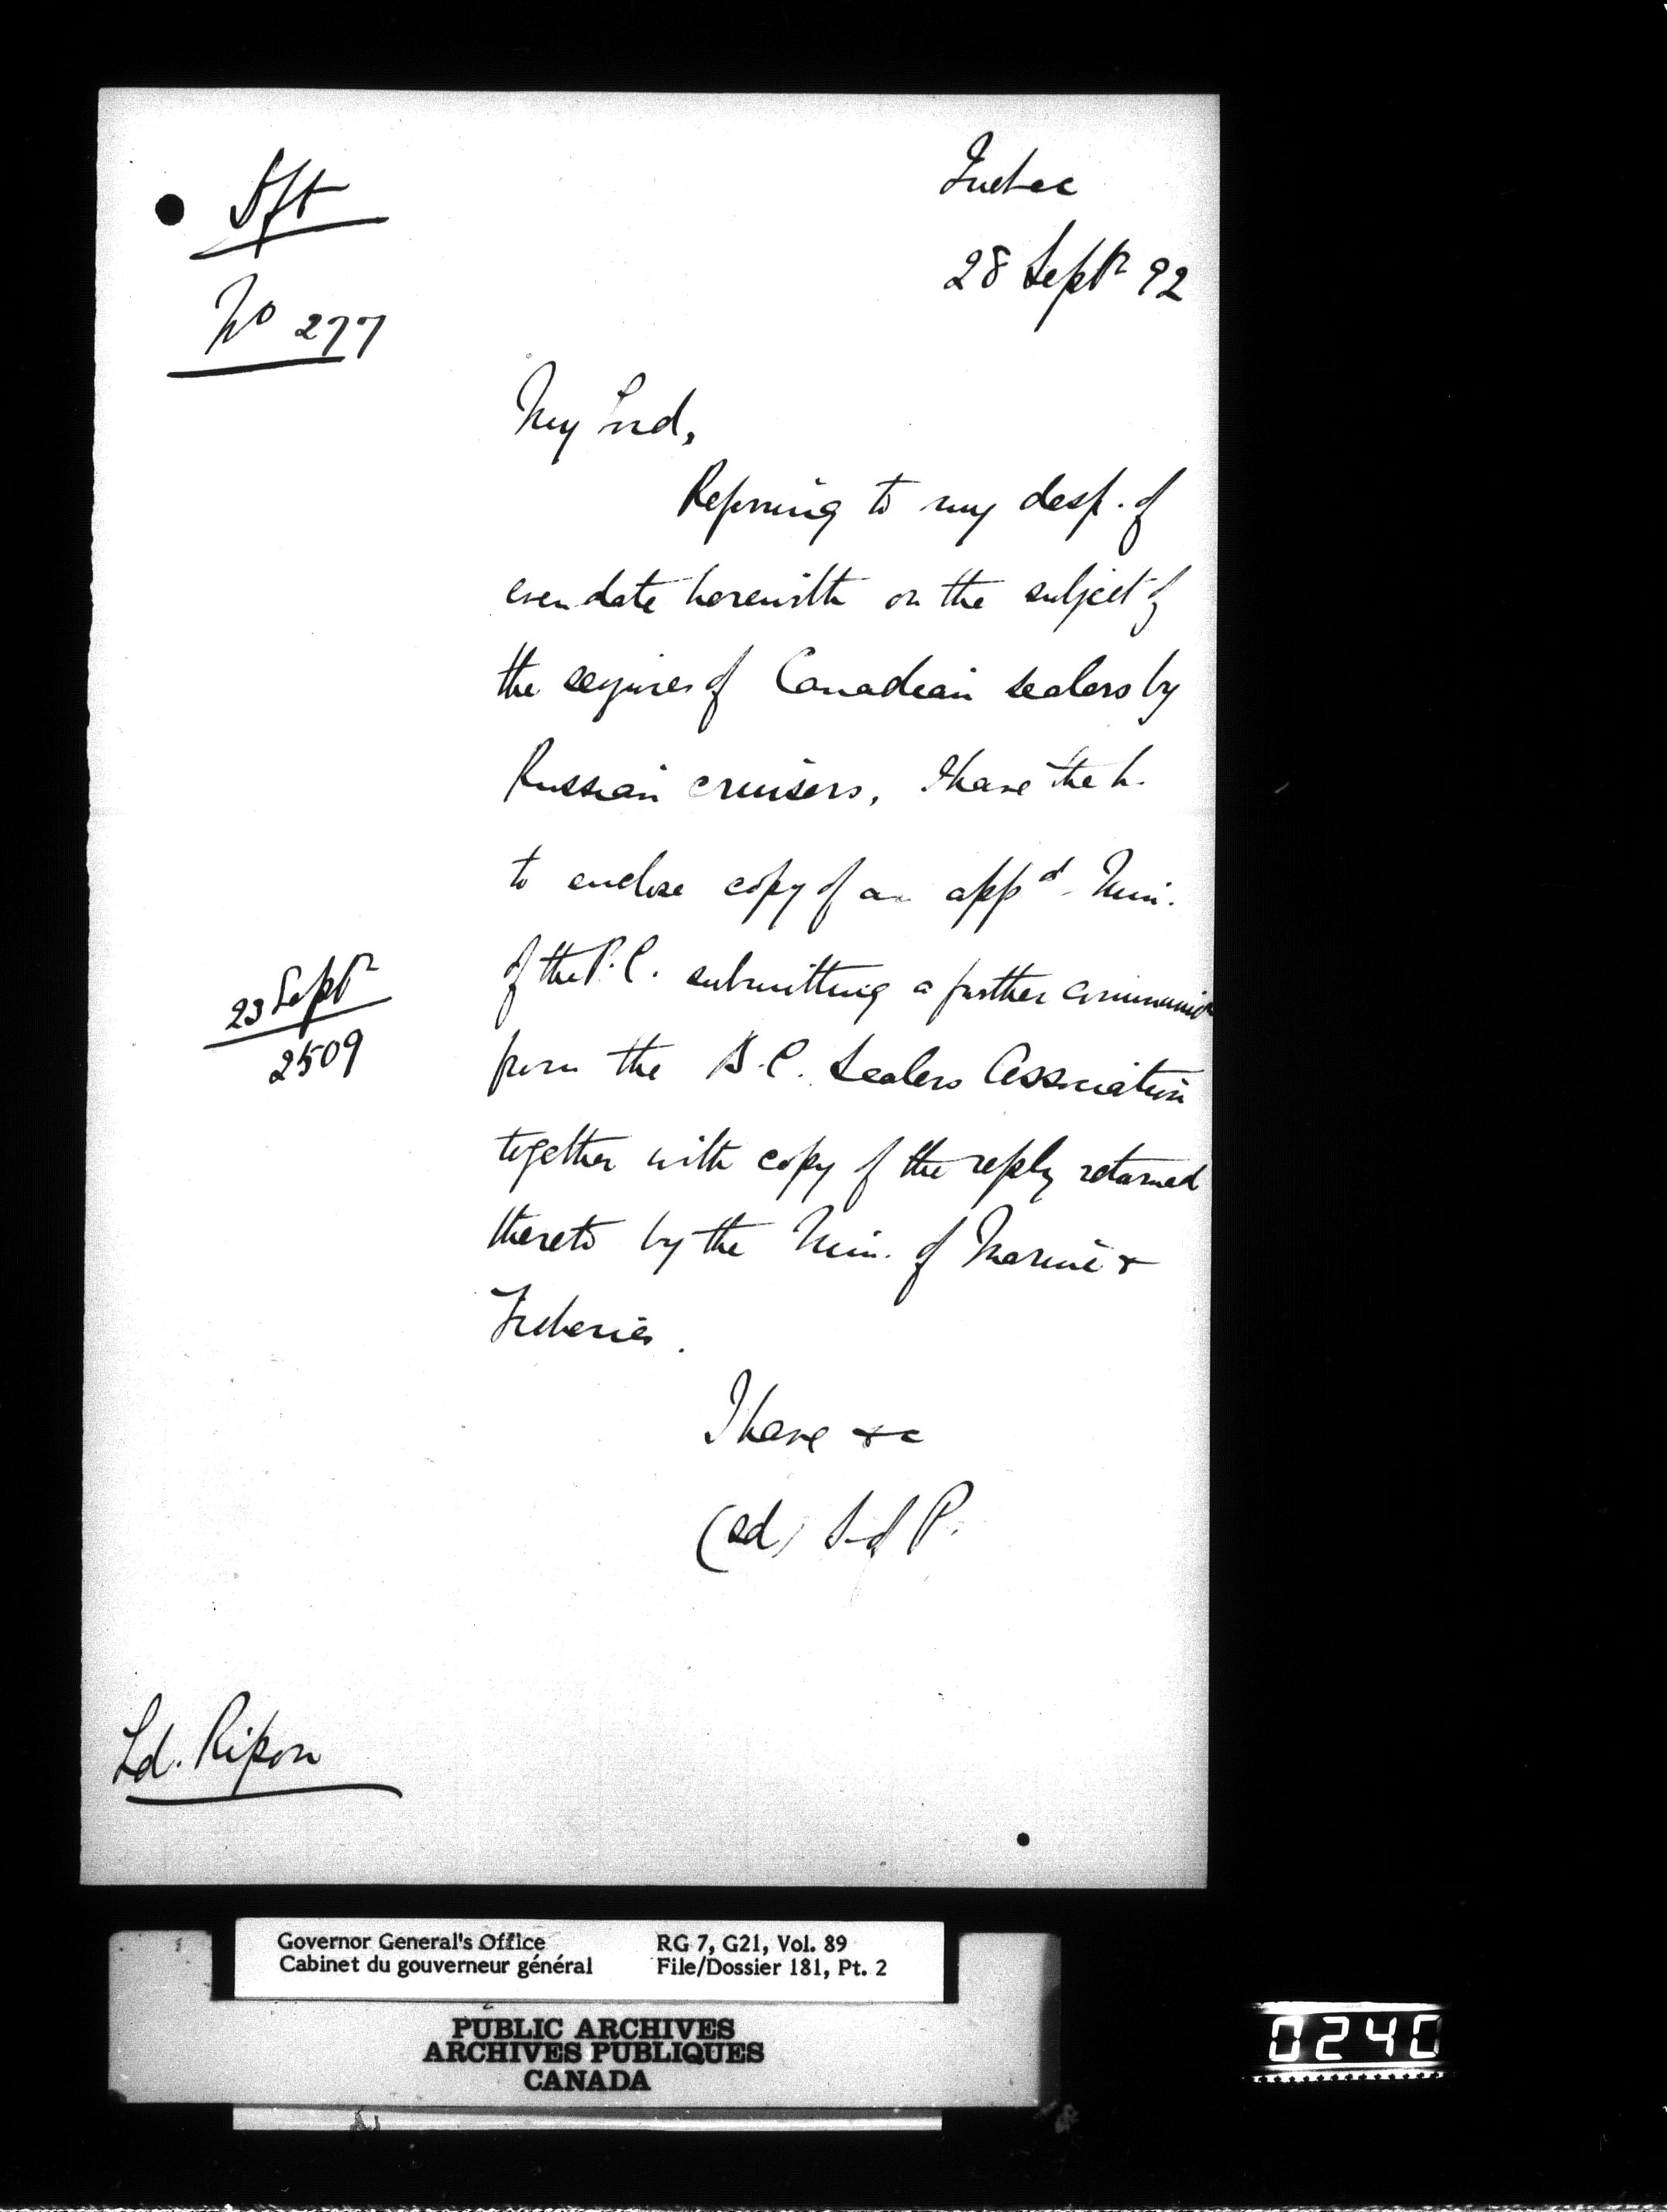 Dft
No 277
Quebec
28 Septr 92
My Lord,
Referring to my desp. of
even date herewith on the subject of
the seizures of Canadian sealers by
Russian cruisers, I have the h.
to enclose copy of an appd Min.
of the P.C. submitting a further communicn
23 Septr
2509
from the B.C. Sealers Association
together with copy of the reply returned
thereto by the Min. of Marine &
Fisheries.
I have &c
(sd) S. of P.
Ld. Ripon
Governor General's Office
Cabinet du gouverneur général
RG 7, G21, Vol. 89
File/Dossier 181, Pt. 2
PUBLIC ARCHIVES
ARCHIVES PUBLIQUES
CANADA
0240